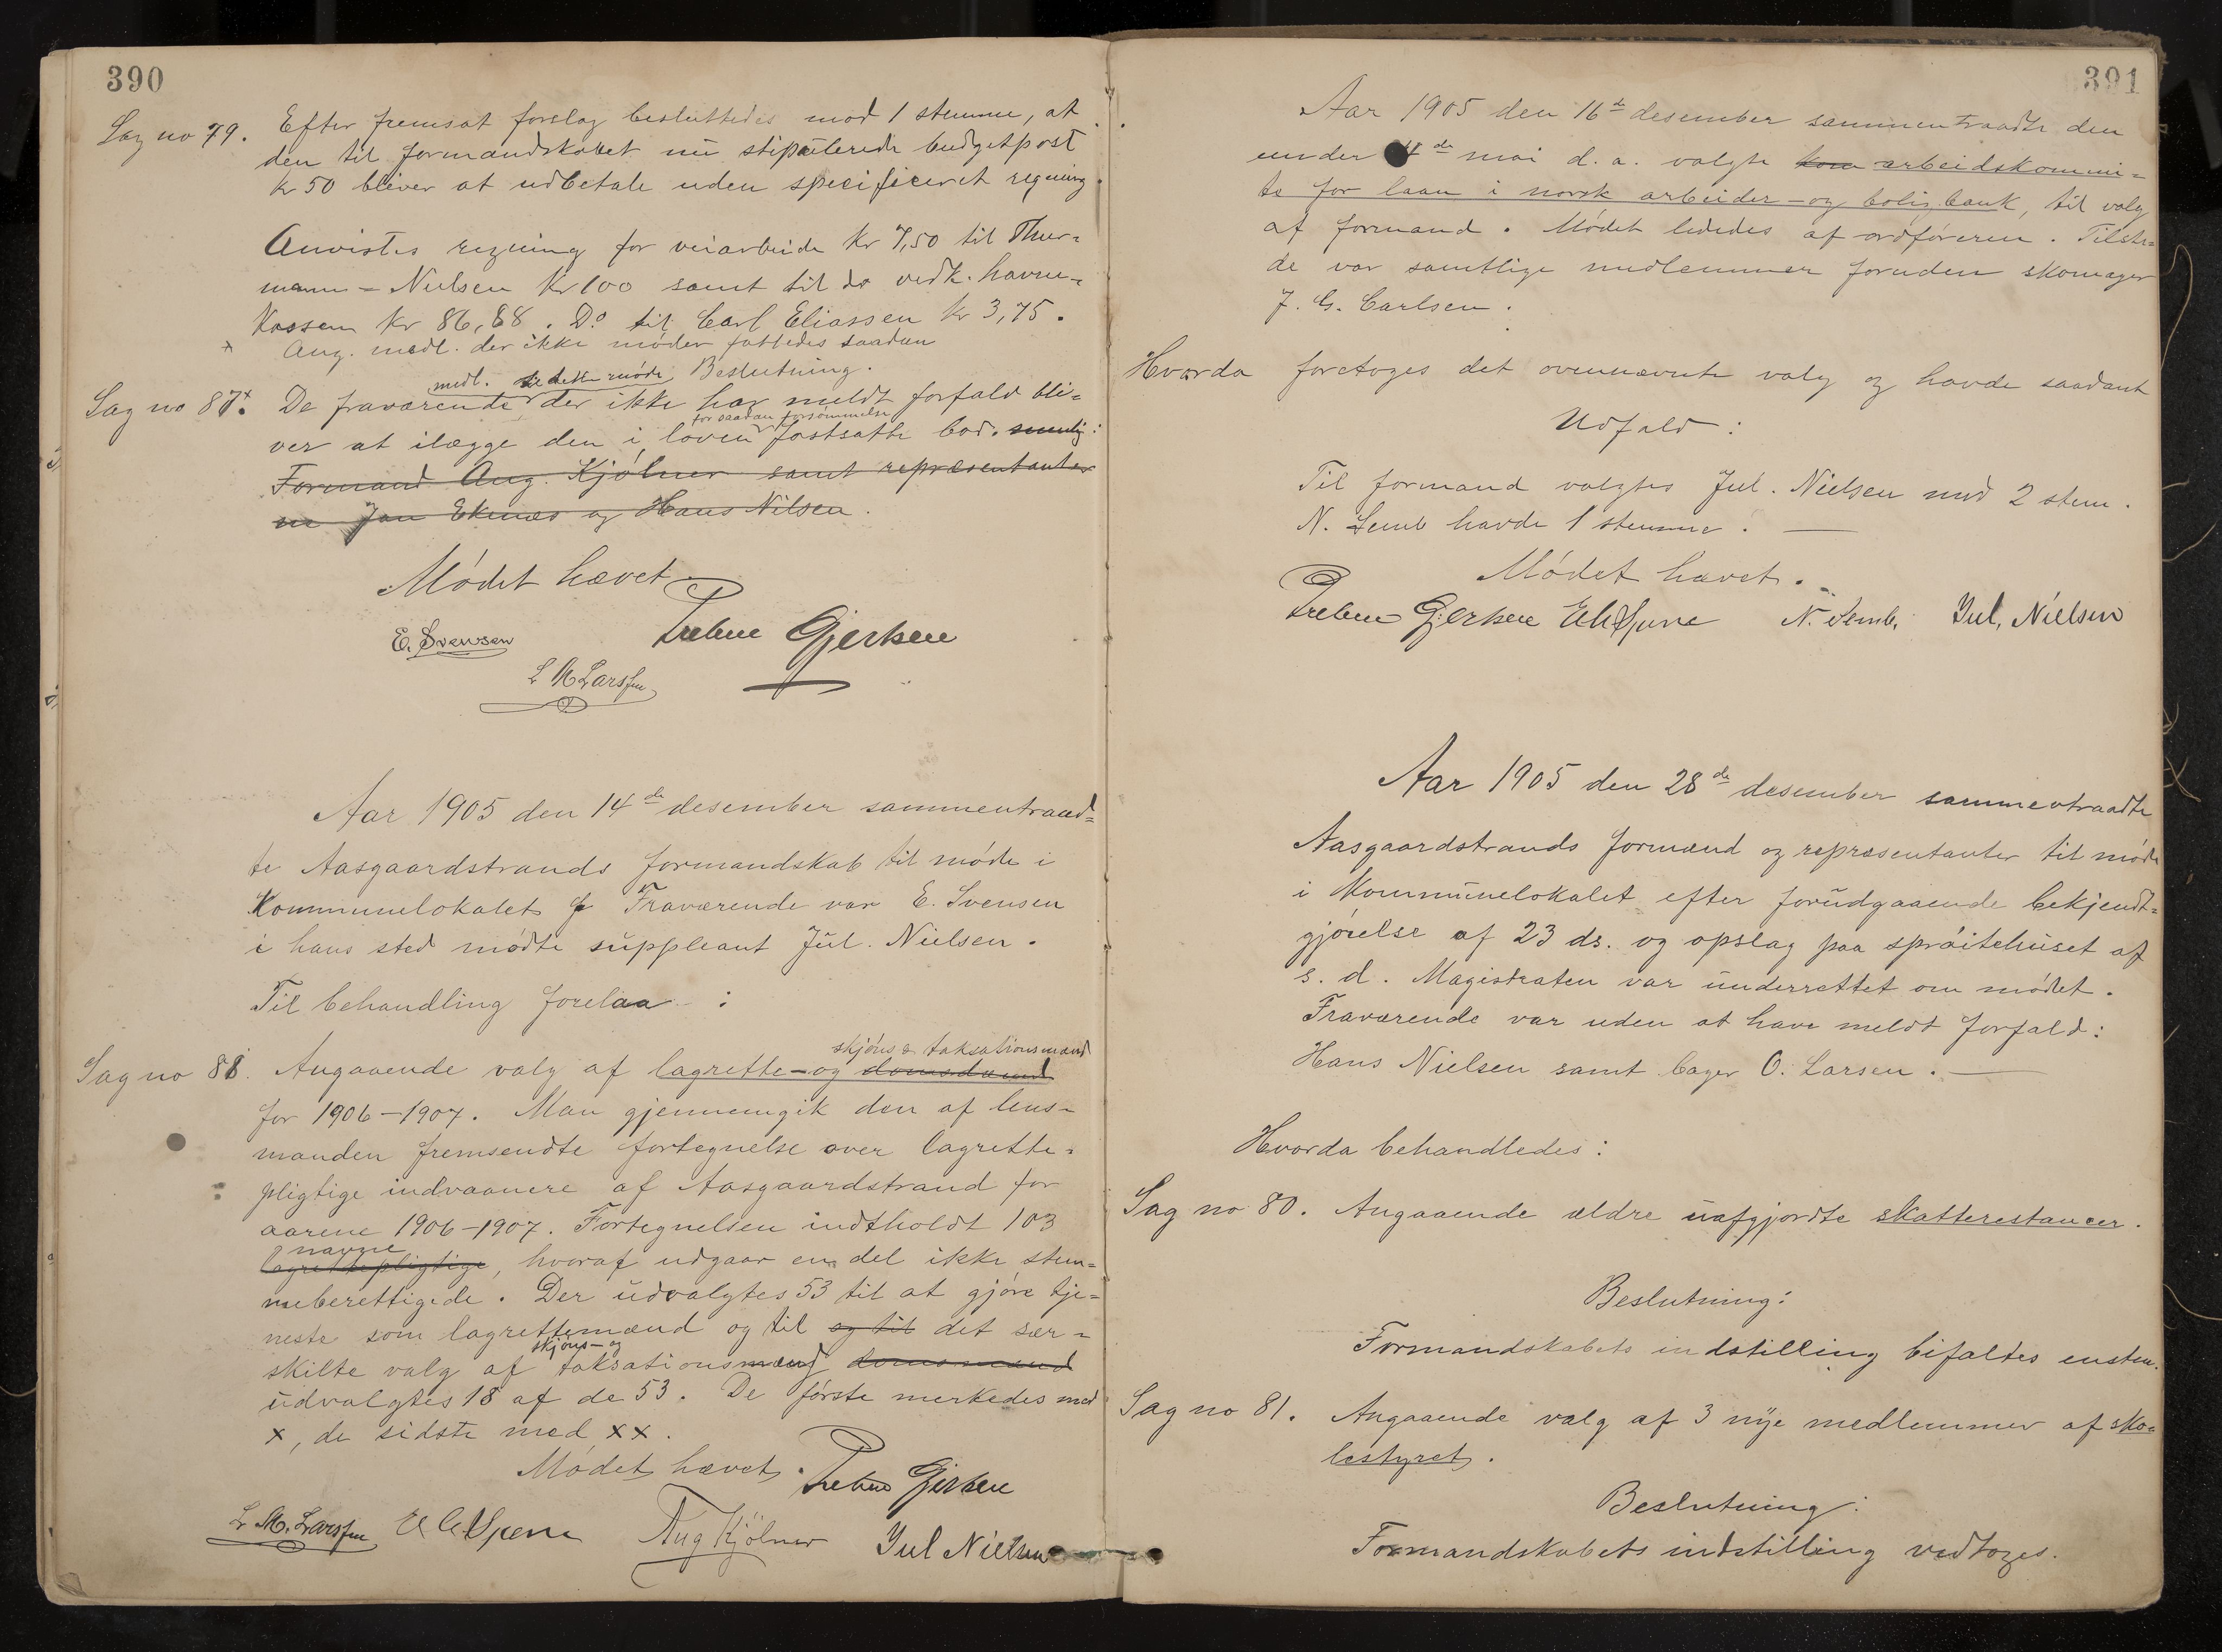 390
Sag no 79. Efter fremsat forslag besluttedes mod 1 stemme, at
den til formandskabet nu stipulerede budgetpost
kr 50 bliver at udbetale uden specificeret regning.
Anvistes regning for veiarbeide kr 7,50 til Thur-
mann-Nielsen Kr 100 samt til do vedk. havne-
Kassen Kr 86,88. Do til Carl Eliassen kr 3,75.
x Ang. medl. der ikke møder fattedes saadan
Beslutning.
medl. til dette møde
Sag no 87x. De fraværende der ikke har meldt forfald bli-
for saadan forsømmelse
ver at ilægge den i loven fastsatte bod. nemlig:
Formand Aug. Kjølner samt repræsentanter
ne Jan Ekenæs og Hans Nilsen.
Mødet hævet
E. Svensen Preben Gjersøe
L M Larssen
Aar 1905 den 14de desember sammentraad=
te Aasgaardstrands formandskab til møde i
Kommunelokalet Fraværende var E. Svensen
i hans sted mødte suppleant Jul. Nielsen.
Til behandling forelaa :
skjøns & taksationsmænd
Sag no 88. Angaaende valg af lagrette- og domsdmænd
for 1906-1907. Man gjennemgik den af lens-
manden fremsendte fortegnelse over lagrette-
pligtige indvaanere af Aasgaardstrand for
aarene 1906-1907. Fortegnelsen indtholdt 103
navne
lagrettepligtige, hvoraf udgaar en del ikke stem=
meberettigede. Der udvalgtes 53 til at gjøre tje=
neste som lagrettemænd og til og til det sær-
skjøns- og
skilte valg af taksationsmænd domsmænd
udvalgtes 18 af de 53. De første merkedes med
x, de sidste med xx.
Mødet hævet. Preben Gjersøe
L M. Larssen Aug Kjölner Jul Nielsen
391
Aar 1905 den 16de desember sammentraadte den
under 4de mai d.a. valgte kom arbeidskommi=
te for laan i norsk arbeider- og boligbank, til valg
af formand. Mødet lededes af ordføreren. Tilste=
de var samtlige medlemmer foruden skomager
J. G. Carlsen.
Hvorda foretoges det ovennævnte valg og havde saadant
Udfald:
Til formand valgtes Jul. Nielsen med 2 stem.
N. Semb havde 1 stemme.
Mødet hævet.
Preben Gjersøe N. Semb, Jul, Nielsen
Aar 1905 den 28de desember sammentraadte
Aasgaardstrands formænd og repræsentanter til møde
i Kommunelokalet efter forudgaaende bekjendt=
gjørelse af 23 ds. og opslag paa sprøitehuset af
s. d. Magistraten var underrettet om mødet.
Fraværende var uden at have meldt forfald:
Hans Nielsen samt bager O. Larsen.
Hvorda behandledes:
Sag no 80. Angaaende ældre uafgjordte skatterestancer.
Beslutning:
Formandskabets indstilling bifaltes enstem.
Sag no 81. Angaaende valg af 3 nye medlemmer af sko=
lestyret.
Beslutning:
Formandskabets indstilling vedtoges.